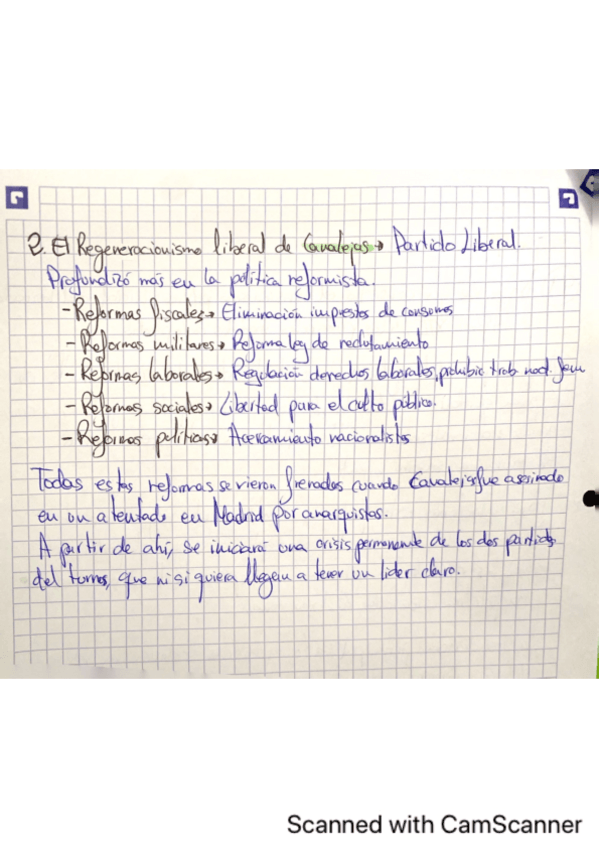 2. El Regeneracionismo liberal de Canalejas → Partido Liberal.
Profundizó más en la política reformista.
- Reformas fiscales → Eliminación impuestos de consumos
- Reformas militares → Reforma ley de reclutamiento
- Reformas laborales → Regulación derechos laborales, prohibic trab noct. fem
- Reformas sociales → Libertad para el culto público.
- Reformas políticas → Acercamiento nacionalistas
Todas estas reformas se vieron frenadas cuando Canalejas fue asesinado
en un atentado en Madrid por anarquistas.
A partir de ahí, se iniciará una crisis permanente de los dos partidos
del turno, que ni siquiera llegan a tener un lider claro.
Scanned with CamScanner